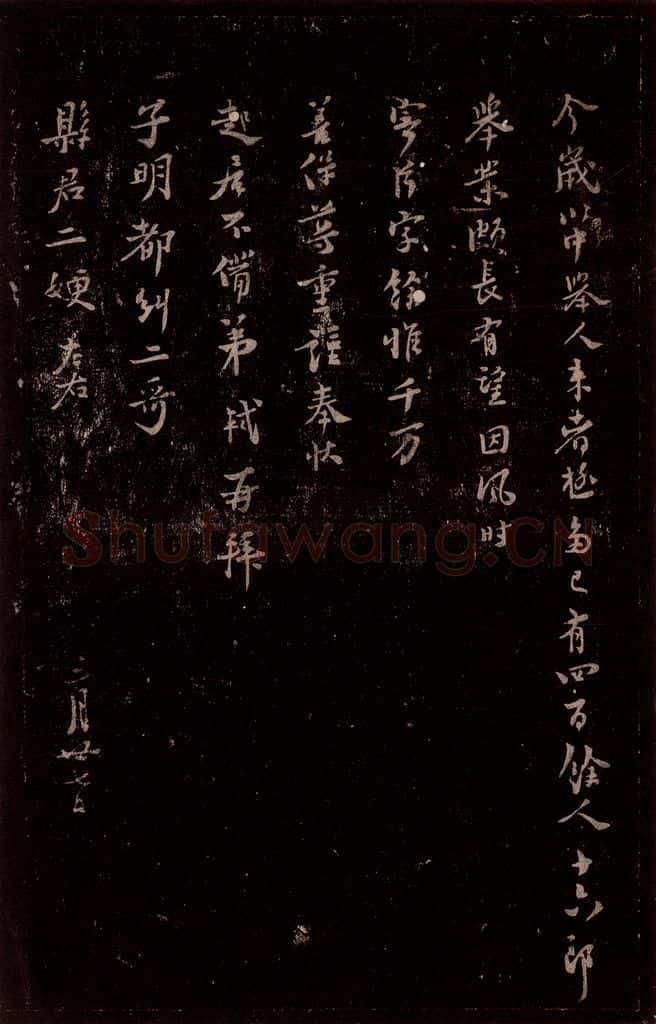 今歲薺舉人來者極多已有四百餘人十六郎
舉業頗長有望因風時
寄片字餘惟千万
善保尊重謹奉狀
起居不備弟軾再拜
子明都糾二哥
縣君二嫂左右
三月廿七日
Shufawang.CN